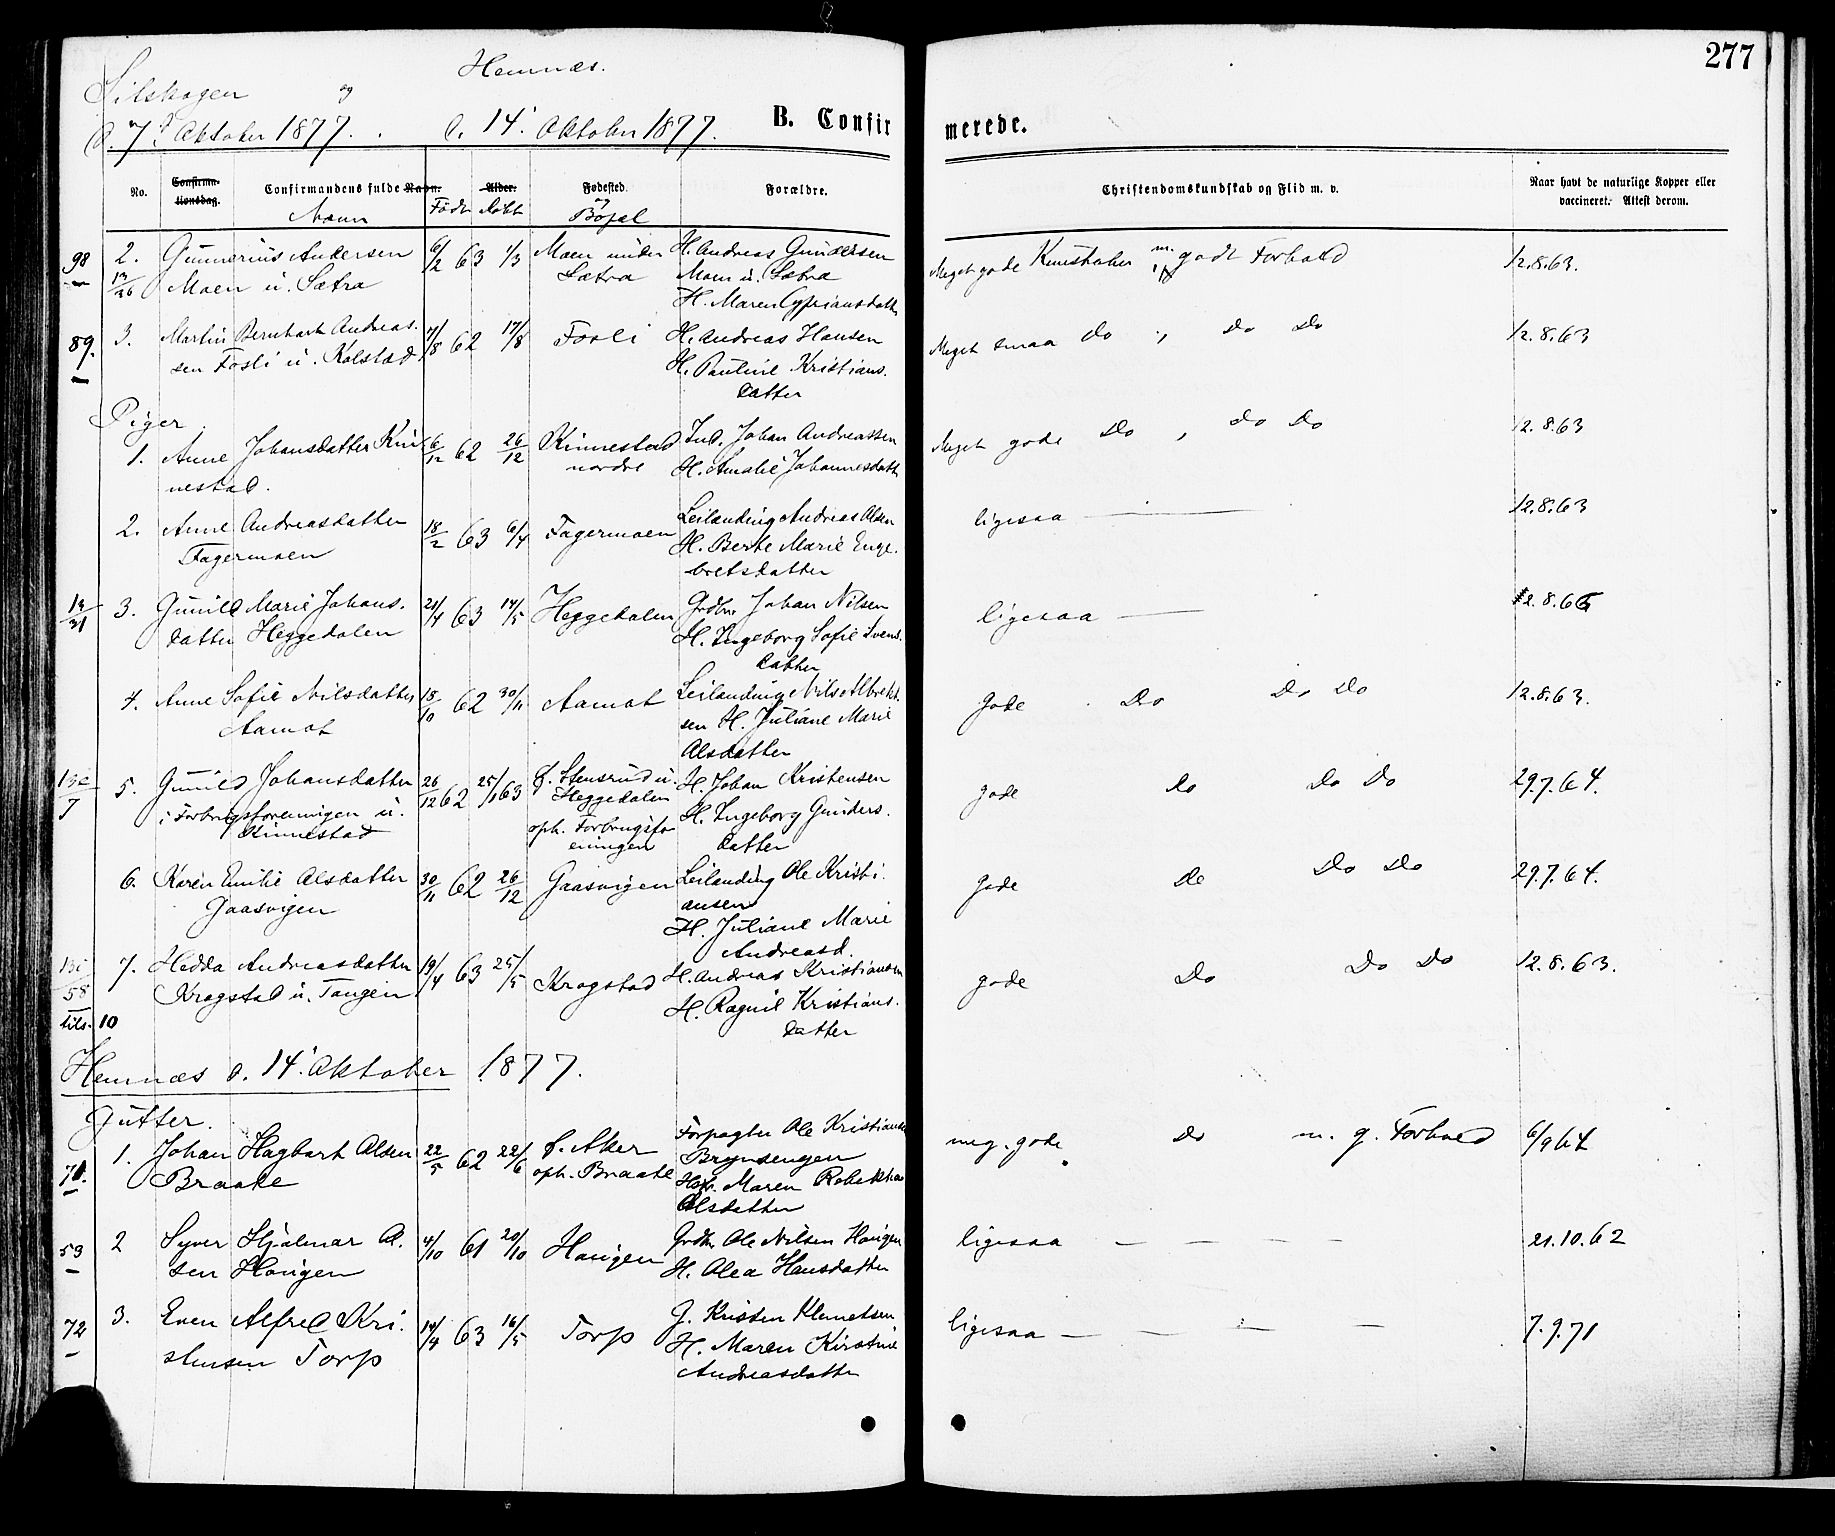 277
Hemnæs.
Silskogen og
d. 7d Oktober 1877. d. 14' Oktober 1877.
B. Confirmerede.
No. Confirmationsdag. Confirmandens fulde Navn. Alder. Fødested. Forældre. Christendomskundskab og Flid m. v. Naar havt de naturlige Kopper eller vaccineret. Attest derom.
Navn Født døbt og Bopæl
98 2. Gunnerius Andersen 6/2 63 1/3 Moen under H. Andreas Gundersen Meget gode Kundskaber m. godt Forhold 12.8.63.
13/26 Moen u. Sætra Sætra Moen u. Sætra
H. Maren Cypriansdatter
89. 3. Martin Bernhart Andreas. 7/8 62 17/8 Fosli H. Andreas Hansen Meget smaa do , do do 12.8.63
sen Fosli u. Kolstad H. Pauline Kristians.
datter
Piger.
1. Anne Johansdatter Kin 6/12 62 26/12 Kinnestad Ind. Johan Andreassen Meget gode do , do do 12.8.63
nestad. nordre H. Amalie Johannesdatt
2. Anne Andreasdatter 18/2 63 6/4 Fagermoen Leilænding Andreas Olsen ligesaa 12.8.63
Fagermoen H. Berte Marie Enge.
bretsdatter
3. Gunild Marie Johans. 21/4 63 14/5 Heggedalen Grdbr. Johan Nilsen ligesaa
datter Heggedalen H. Ingeborg Sofie Svens.
datter
4. Anne Sofie Nilsdatter 18/10 62 30/11 Aamot Leilænding Nils Albrekt. gode do do do 12.8.63.
Aamot sen H. Juliane Marie
Olsdatter
5. Gunild Johansdatter 26/12 62 25/1 63 f. Stensrud u. H. Johan Kristensen gode do do do 29.7.64.
i Forbrugsforeningen u. Heggedalen H. Ingeborg Gunders.
Kinnestad oph. Forbrugsfo datter
eningen
6. Karen Emilie Olsdatter 30/11 62 26/12 Gaasvigen Leilænding Ole Kristi. gode do do do 29.7.64.
Gaasvigen ansen
H. Juliane Marie
Andreasd.
58 7. Hedda Andreasdatter 19/4 63 25/5 Krogstad H. Andreas Kristiansen gode do do do 12.8.63.
Krogstad u. Tangen H. Ragnil Kristians.
10 datter
Hemnæs d. 14' Oktober 1877.
Gutter.
71. 1. Johan Hagbart Olsen 22/5 62 22/6 f. Aker Forpagter Ole Kristians meg. gode do m. g. Forhold 6/9 64
Braate oph. Braate Brynsengen
Maren
Olsdatter
53 2 Syver Hjalmar O. 4/10 61 20/10 Haugen Grdbr. Ole Nilsen Haugen ligesaa 21.10.62
sen Haugen H. Olea Hansdatter
72 3. Even Alfred Kri. 14/4 63 16/5 Torp G. Kristen Klemetsen ligesaa 7.9.71
stensen Torp H. Maren Kirstine
Andreasdatter